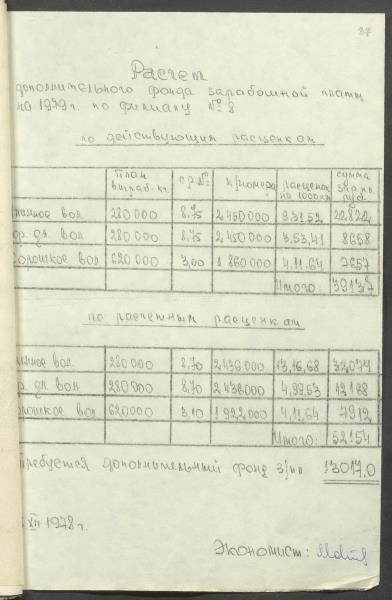 37
Расчет
дополнительного фонда заработной платы
на 1979 г. по филиалу № 8
по действующим расценкам
План выраб. кг. ср № к/номера расценка на 1000 км сумма зар.пл. руб.
вол. 280 000 8.75 2 450 000 9.31.52 22.822
вол 280 000 8.75 2 450 000 3.53,41 8658
вол 620 000 3,00 1 860 000 4.11.64 7657
Итого: 39137
по расчетным расценкам
вол. 280 000 8.70 2 436 000 13,16,68 32074
вол 280 000 8.70 2 436 000 4,99,53 12168
вол 620 000 3,10 1 922 000 4,11,64 7912
Итого: 52154
Требуется дополнительный фонд з/пл 13017.0
XII 1978 г.
Экономист: